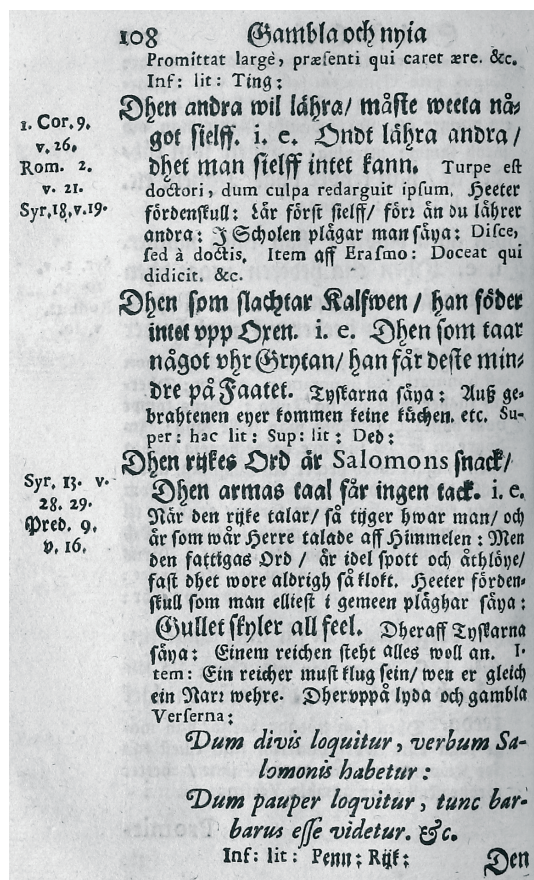 108 Gambla och nyia
Promittat largè, præsenti qui caret ære. &c.
Inf: lit: Ting:
Dhen andra wil lähra/ måste weeta nå⸗
1. Cor. 9.
v. 26.
Rom. 2.
v. 21.
Syr. 18. v. 19.
got sielff. i. e. Ondt lähra andra/
dhet man sielff intet kann. Turpe est
doctori, dum culpa redarguit ipsum. Heeter
fördenskull: Lär först sielff/ förr än du lährer
andra: J Scholen plägar man säya: Disce,
sed à doctis, Item aff Erasmo: Doceat qui
didicit. &c.
Dhen som slachtar Kalfwen/ han föder
intet vpp Oxen. i. e. Dhen som taar
något vhr Grytan/ han får deste min⸗
dre på Faatet. Tyskarna säya: Auß ge⸗
brahtenen eyer kommen keine küchen. etc. Su-
per: hac lit: Sup: lit: Ded:
Dhen rijkes Ord är Salomons snack/
Syr. 13. v.
28. 29.
Pred. 9.
v. 16.
Dhen armas taal får ingen tack. i. e.
När den rijke talar/ så tijger hwar man/ och
är som wår Herre talade aff Himmelen: Men
den fattigas Ord/ är idel spott och åthlöye/
fast dhet wore aldrigh så klokt. Heeter förden⸗
skull som man elliest i gemeen pläghar säya:
Gullet skyler all feel. Dheraff Tyskarna
säya: Einem reichen steht alles woll an. I-
tem: Ein reicher must klug sein/ wen er gleich
ein Narr wehre. Dheruppå lyda och gambla
Verserna:
Dum divis loquitur, verbum Sa-
lomonis habetur:
Dum pauper loqvitur, tunc bar-
barus esse videtur. &c.
Inf: lit: Penn: Rijk:
Den